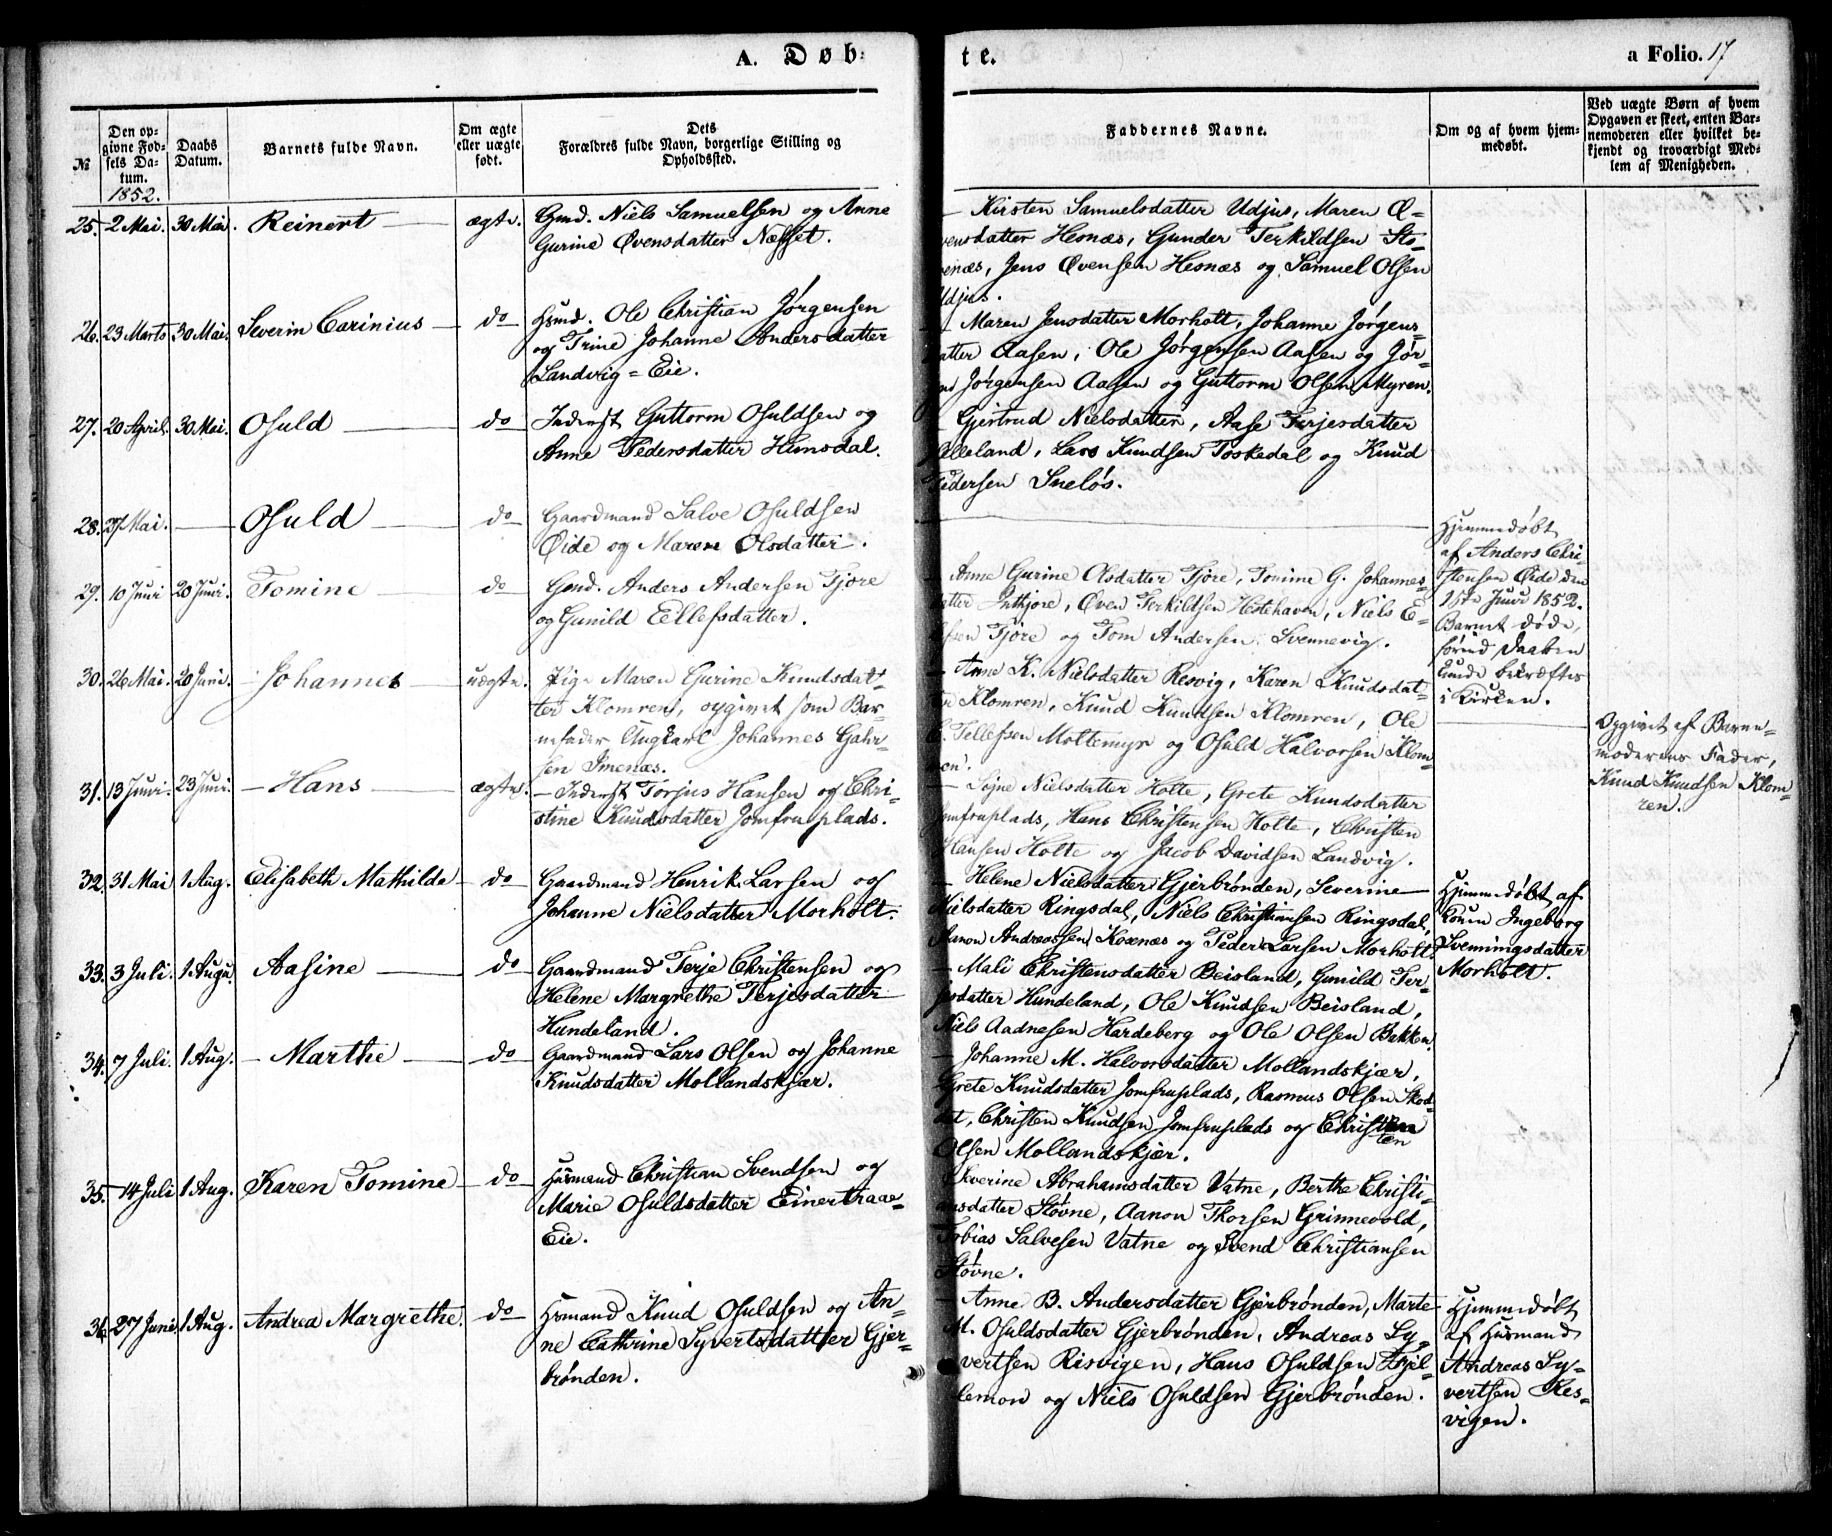 A. Døb-
te.
a Folio. 17
№
Den op-
givne Fød-
sels Da-
tum.
1852.
Daabs
Datum.
Barnets fulde Navn.
Om ægte
eller uægte
født.
Dets
Forældres fulde Navn, borgerlige Stilling og
Opholdssted.
Faddernes Navne.
Om og af hvem hjem-
medøbt.
Ved uægte Børn af hvem
Opgaven er skeet, enten Bar-
nemoderen eller hvilket be-
kjendt og troværdigt Med-
lem af Menigheden.
25. 2 Mai. 30 Mai. Reinert ægte. Gmd. Niels Samuelsen og Anne
Gurine Øvensdatter Næsset.
— Kirsten Samuelsdatter Udjus, Maren Ø-
vensdatter Hesnæs, Gunder Terkildsen Sto-
enæs, Jens Øvensen Hesnæs og Samuel Olsen
Udjus.
26. 23 Marts 30 Mai. Severin Carinius do Hsmd. Ole Christian Jørgensen
og Trine Johanne Andersdatter
Landvig-Eie.
— Maren Jensdatter Morholt, Johanne Jørgens-
atter Aasen, Ole Jørgensen Aasen og Jør-
Jørgensen Aasen og Guttorm Olsen Myren.
27. 20 April. 30 Mai. Osuld do Inderst Guttorm Osuldsen og
Anne Pedersdatter Hunsdal.
Gjertrud Nielsdatter, Aase Terjesdatter
elleland, Lars Knudsen Toskedal og Knud
Pedersen Sneløs.
28. 27 Mai. — Osuld do Gaardmand Salve Osuldsen
Øide og Maren Olsdatter.
Hjemmedøbt
af Anders Chri-
stensen Øide den
1ste Juni 1852.
Barnet døde,
førend Daaben
kunde bekræftes
i Kirken.
29. 10 Juni 20 Juni. Tomine do Gmd. Anders Andersen Tjore
og Gunild Ellefsdatter.
— Anne Gurine Olsdatter Tjore, Tomine G. Johannes-
atter Inntjore, Øven Terkildsen Hestehaven, Niels E-
lefsen Tjøre og Tom Andersen Svennevig.
30. 26 Mai. 20 Juni. Johannes uægte. Pige Maren Gurine Knudsdat-
ter Klomren, opgivet som Bar-
nefader Ungkarl Johannes Gahr-
sen Imenæs.
— Anne K. Nielsdatter Resvig, Karen Knudsdat-
ter Klomren, Knud Knudsen Klomren, Ole
Tellefsen Moltemyr og Osuld Halvorsen Klom-
ren.
Opgivet af Barne-
moderens Fader,
Knud Knudsen Klom-
ren.
31. 13 Juni. 23 Juni. — Hans ægte. — Inderst Torjus Hansen og Chri-
stine Knudsdatter Jomfruplads.
— Signe Nielsdatter Holte, Grete Knudsdatter
Jomfruplads, Hans Christensen Holte, Christen
Hansen Holte og Jacob Davidsen Landvig.
32. 31 Mai 1 Aug. Elisabeth Mathilde do Gaardmand Henrik Larsen og
Johanne Nielsdatter Morholt.
— Helene Nielsdatter Gjerbrønden, Severine
Nielsdatter Ringsdal, Niels Christiansen Ringsdal,
Aanon Andreassen Koxnæs og Peder Larsen Morholt.
Hjemmedøbt af
Konen Ingeborg
Svenningsdatter
Morholt.
33. 3 Juli. 1 Augu. Aasine do Gaardmand Terje Christensen og
Helene Margrethe Terjesdatter
Hundeland.
— Mali Christensdatter Beisland, Gunild Ter-
jesdatter Hundeland, Ole Knudsen Beisland,
Niels Aadnesen Hardeberg og Ole Olsen Bakken.
34. 7 Juli. 1 Aug. — Marthe do Gaardmand Lars Olsen og Johanne
Knudsdatter Mollandskjær.
— Johanne M. Halvorsdatter Mollandskjær,
Grete Knudsdatter Jomfruplads, Rasmus Olsen Skod-
et, Christen Knudsen Jomfruplads og Christen
ten
Olsen Mollandskjær.
35. 14 Juli 1 Aug. Karen Tomine do Husmand Christian Svendsen og
Marie Osuldsdatter Einertraae-
Eie.
Severine Abrahamsdatter Vatne, Berthe Christi-
ansdatter Støvne, Aanon Thorsen Grinnevold,
Tobias Salvesen Vatne og Svend Christiansen
Støvne.
36. 27 Juni 1 Aug. Andrea Margrethe do Hsmand Knud Osuldsen og An-
ne Cathrine Syvertsdatter Gjer-
brønden.
— Anne B. Andersdatter Gjerbrønden, Marte
M. Osuldsdatter Gjerbrønden, Andreas Sy-
vertsen Risvigen, Hans Osuldsen Kjel-
lemon og Niels Osuldsen Gjerbrønden.
Hjemmedøbt
af Husmand
Andreas Sy-
vertsen Res-
vigen.